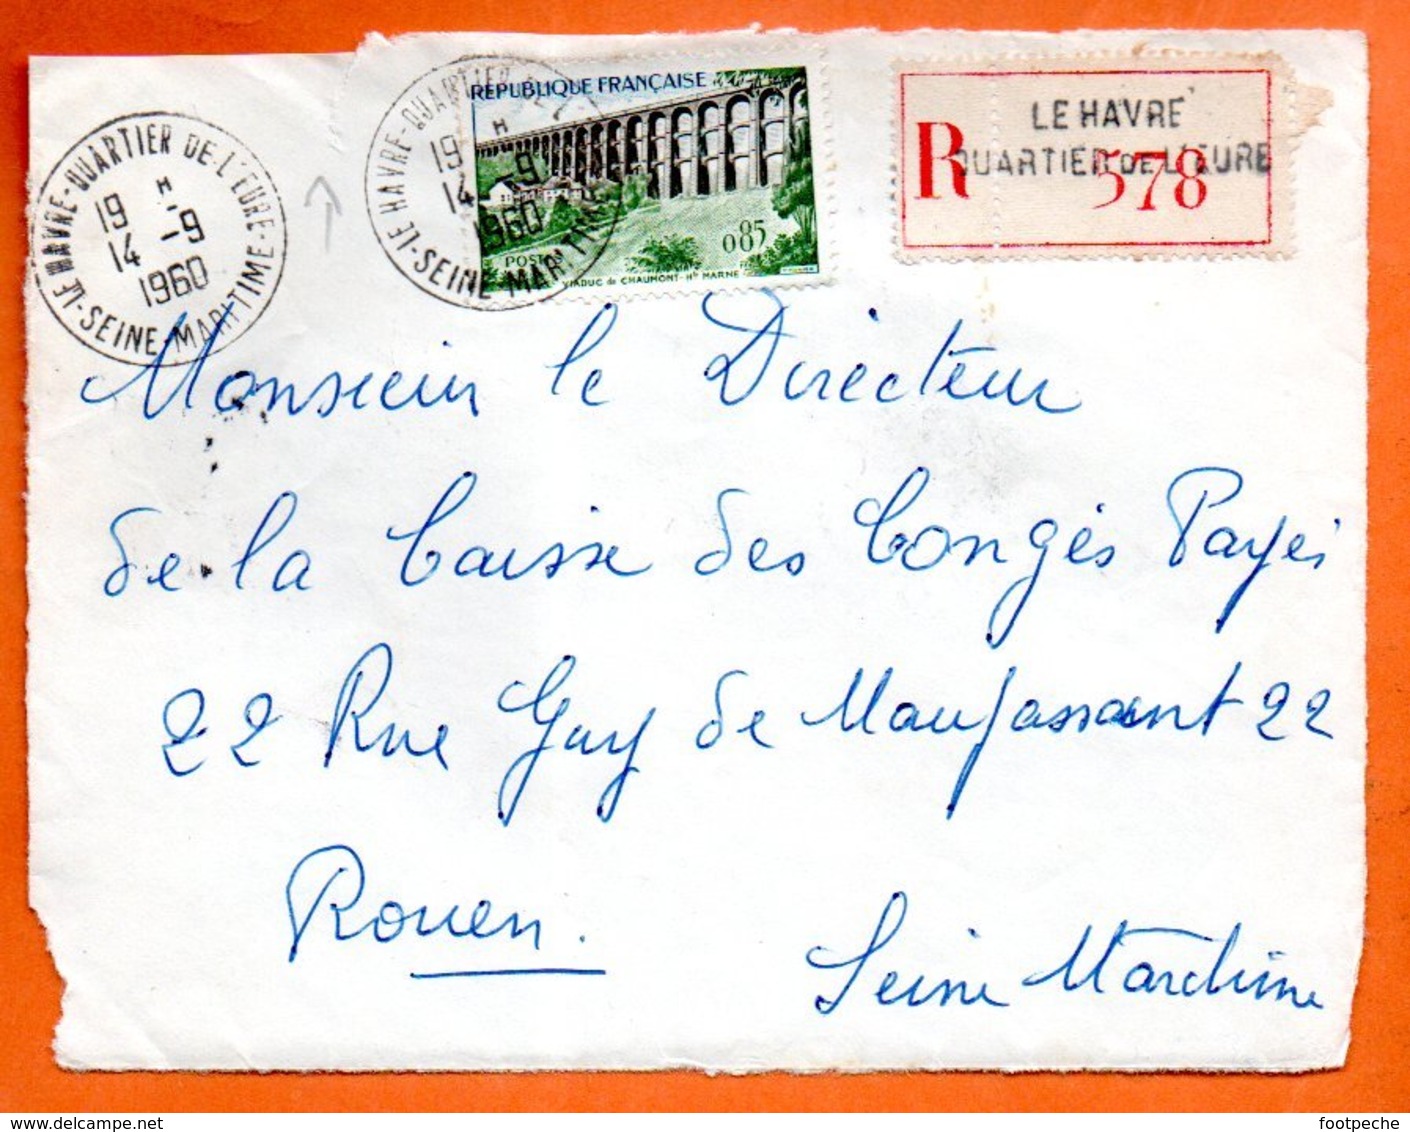 LE HAVRE-QUARTIER DE L'EURE-
19 H
14 -9
1960
-SEINE-MARITIME-
LE HAVRE-QUARTIER DE L'
19 H
14 -9
1960
-SEINE MARITIME
REPUBLIQUE FRANÇAISE
0,85
POSTES
VIADUC de CHAUMONT-Hte MARNE
LE HAVRE
QUARTIER DE L'EURE
R 578
Monsieur le Directeur
de la Caisse des Congés Payés
22 Rue Guy de Maupassant 22
Rouen.
Seine Maritime
delcampe.net
footpeche